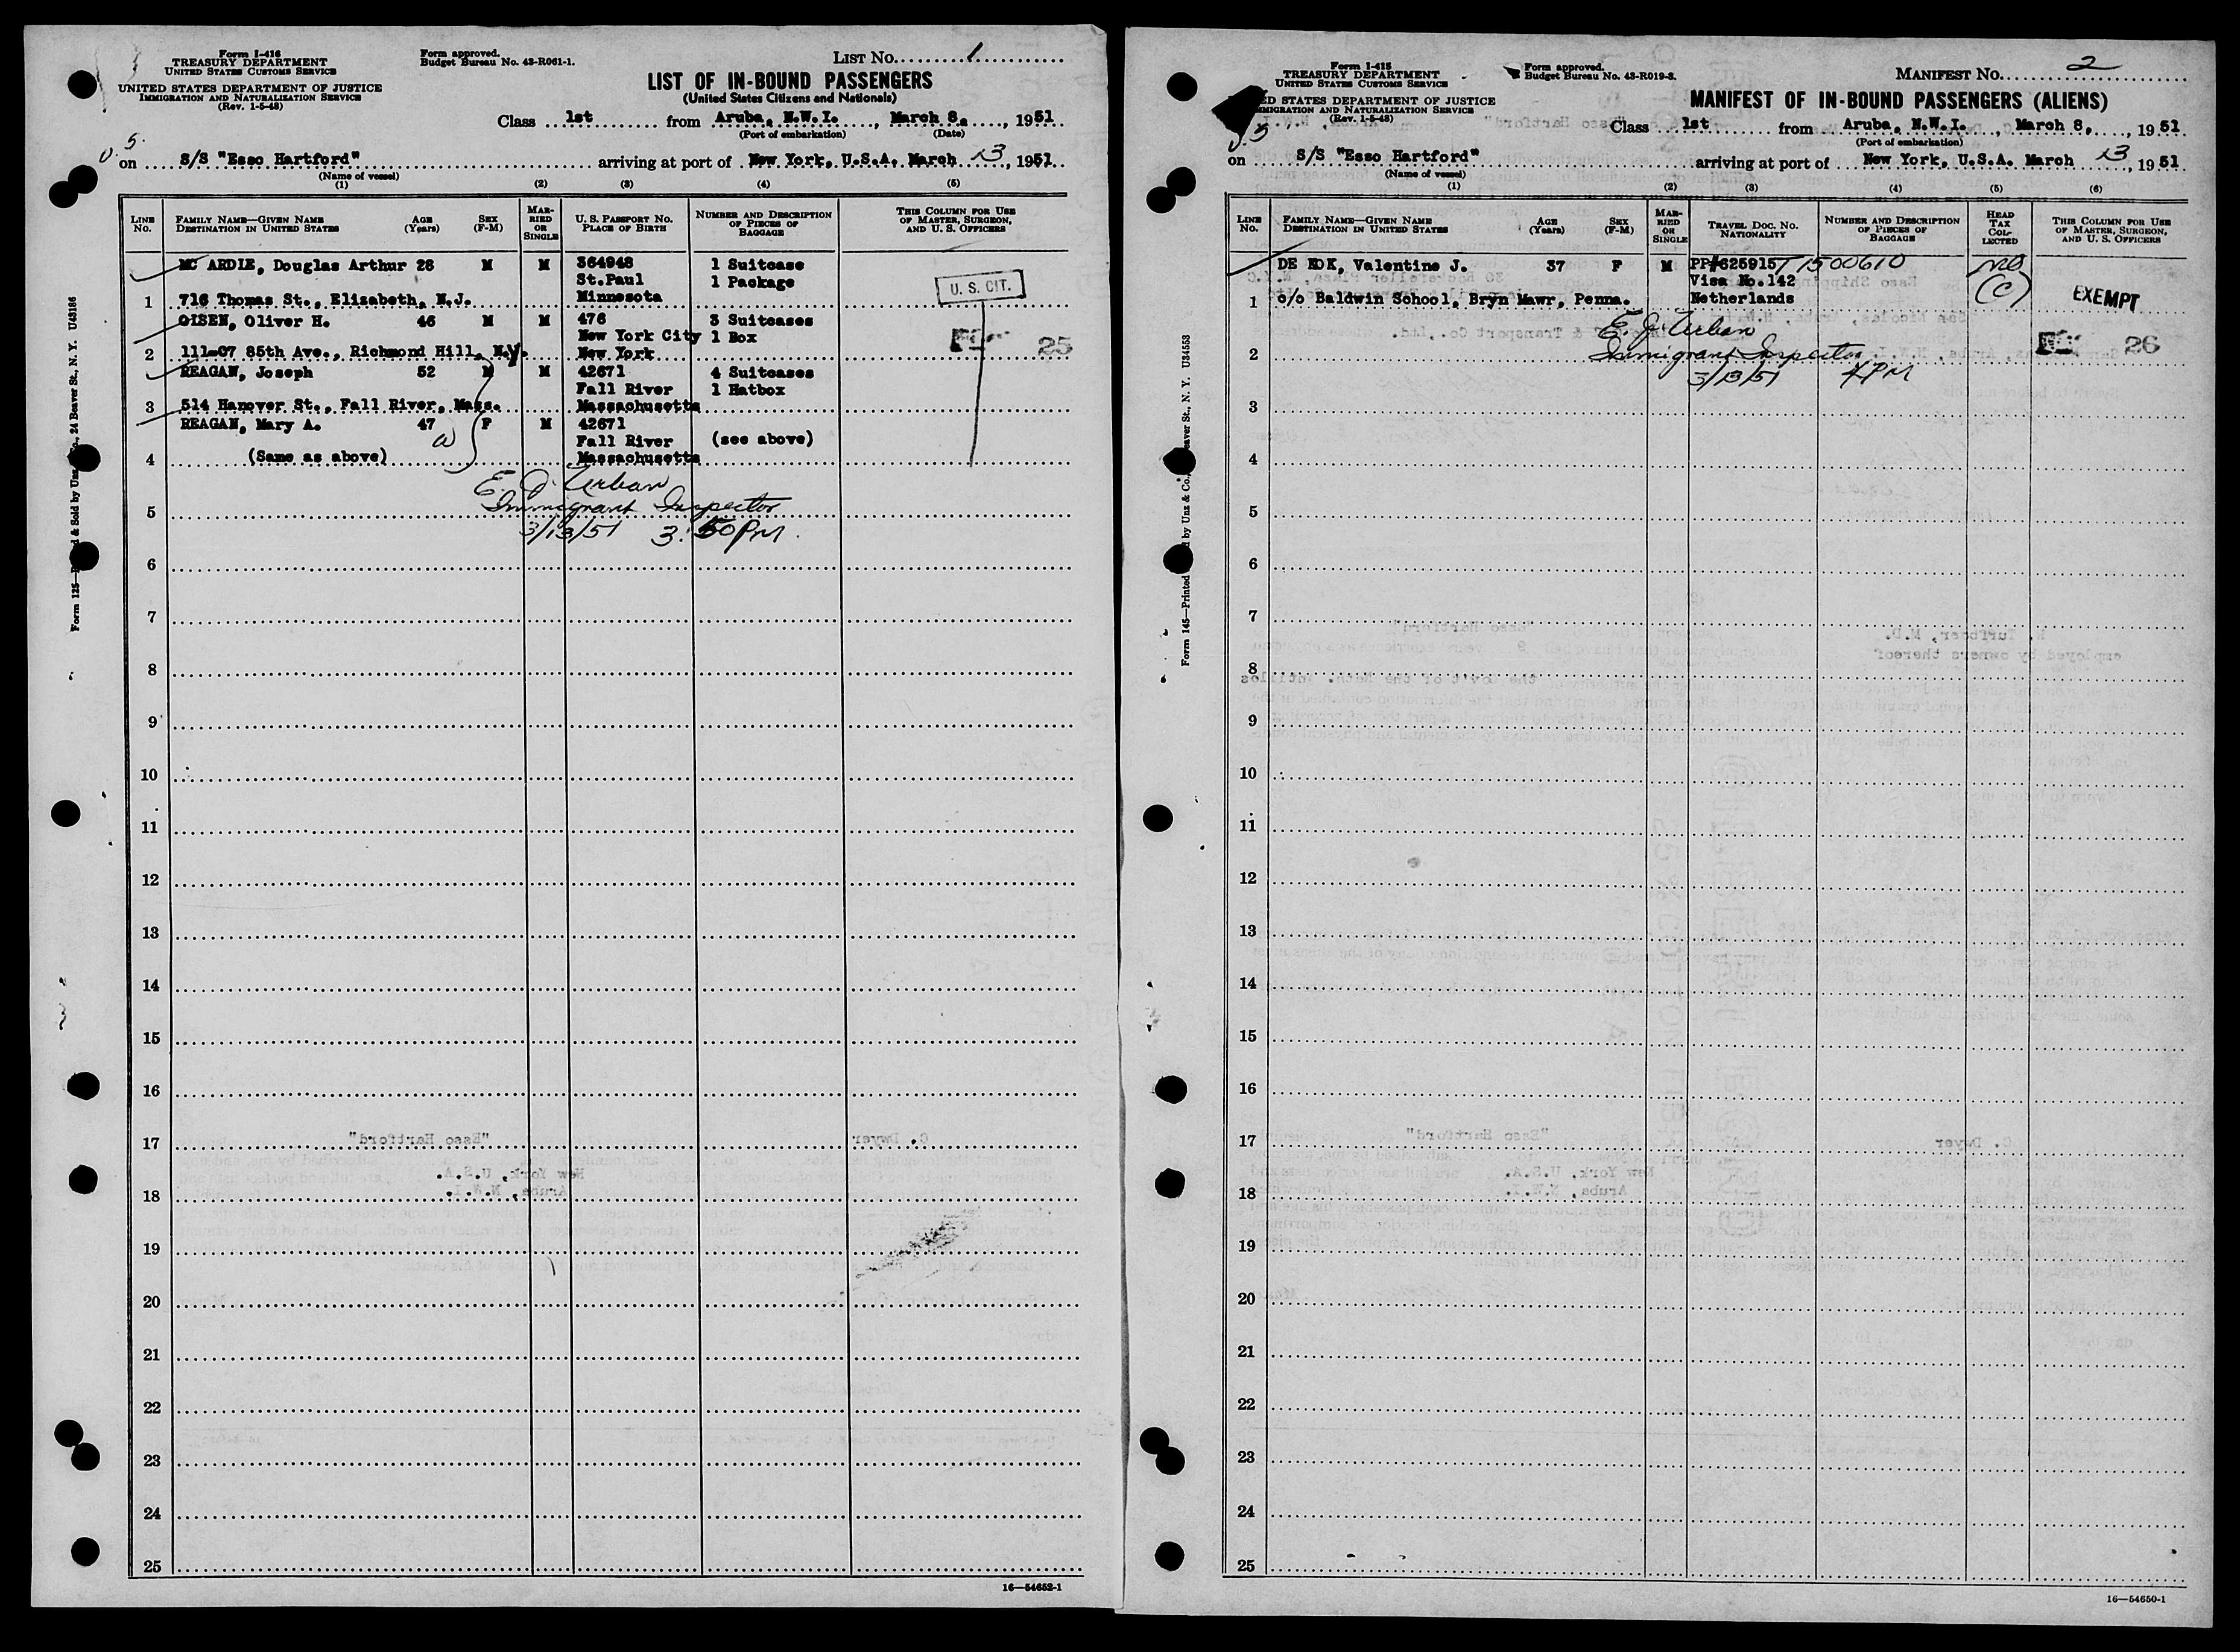 Form I-416
TREASURY DEPARTMENT
UNITED STATES CUSTOMS SERVICE
UNITED STATES DEPARTMENT OF JUSTICE
IMMIGRATION AND NATURALIZATION SERVICE
(Rev. 1-5-48)
Form approved.
Budget Bureau No. 43-R061-1.
LIST NO. 1
LIST OF IN-BOUND PASSENGERS
(United States Citizens and Nationals)
Class 1st from Aruba, N.W.I., March 8, 1951
(Port of embarkation) (Date)
on S/S "Esso Hartford" arriving at port of New York, U.S.A. March 13, 1951
(Name of vessel)
(1) (2) (3) (4) (5)
LINE No. FAMILY NAME—GIVEN NAME DESTINATION IN UNITED STATES AGE (Years) SEX (F-M) MARRIED OR SINGLE U. S. PASSPORT NO. PLACE OF BIRTH NUMBER AND DESCRIPTION OF PIECES OF BAGGAGE THIS COLUMN FOR USE OF MASTER, SURGEON, AND U. S. OFFICERS
MC ARDLE, Douglas Arthur 28 M M 364948 1 Suitcase
St.Paul 1 Package
1 716 Thomas St., Elizabeth, N.J. Minnesota
U. S. CIT.
OLSEN, Oliver H. 46 M M 476 3 Suitcases
New York City 1 Box
2 111-07 85th Ave., Richmond Hill, N.Y. New York
25
REAGAN, Joseph 52 M M 42671 4 Suitcases
Fall River 1 Hatbox
3 514 Hanover St., Fall River, Mass. Massachusetts
REAGAN, Mary A. 47 F M 42671
Fall River (see above)
4 (Same as above) Massachusetts
E. J. Urban
5 Immigrant Inspector
3/13/51 3:50 PM.
6
7
8
9
10
11
12
13
14
15
16
17
18
19
20
21
22
23
24
25
16—54652-1
Form I-415
TREASURY DEPARTMENT
UNITED STATES CUSTOMS SERVICE
ED STATES DEPARTMENT OF JUSTICE
MIGRATION AND NATURALIZATION SERVICE
(Rev. 1-5-48)
Form approved.
Budget Bureau No. 43-R019-3.
MANIFEST NO. 2
MANIFEST OF IN-BOUND PASSENGERS (ALIENS)
Class 1st from Aruba, N.W.I., March 8, 1951
(Port of embarkation)
on S/S "Esso Hartford" arriving at port of New York, U.S.A. March 13, 1951
(Name of vessel)
(1) (2) (3) (4) (5) (6)
LINE No. FAMILY NAME—GIVEN NAME DESTINATION IN UNITED STATES AGE (Years) SEX (F-M) MARRIED OR SINGLE TRAVEL DOC. NO. NATIONALITY NUMBER AND DESCRIPTION OF PIECES OF BAGGAGE HEAD TAX COLLECTED THIS COLUMN FOR USE OF MASTER, SURGEON, AND U. S. OFFICERS
DE KOK, Valentine J. 37 F M PP#625915 T1500610 no
Visa No.142 (C)
1 c/o Baldwin School, Bryn Mawr, Penna. Netherlands
EXEMPT
E. J. Urban
2 Immigrant Inspector 26
3/13/51 4 PM
3
4
5
6
7
8
9
10
11
12
13
14
15
16
17
18
19
20
21
22
23
24
25
16—54650-1